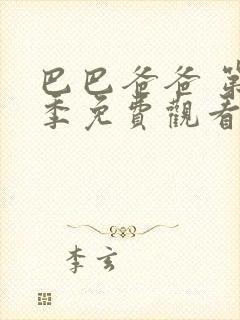 巴巴爸爸 第
季免費觀看
李玄